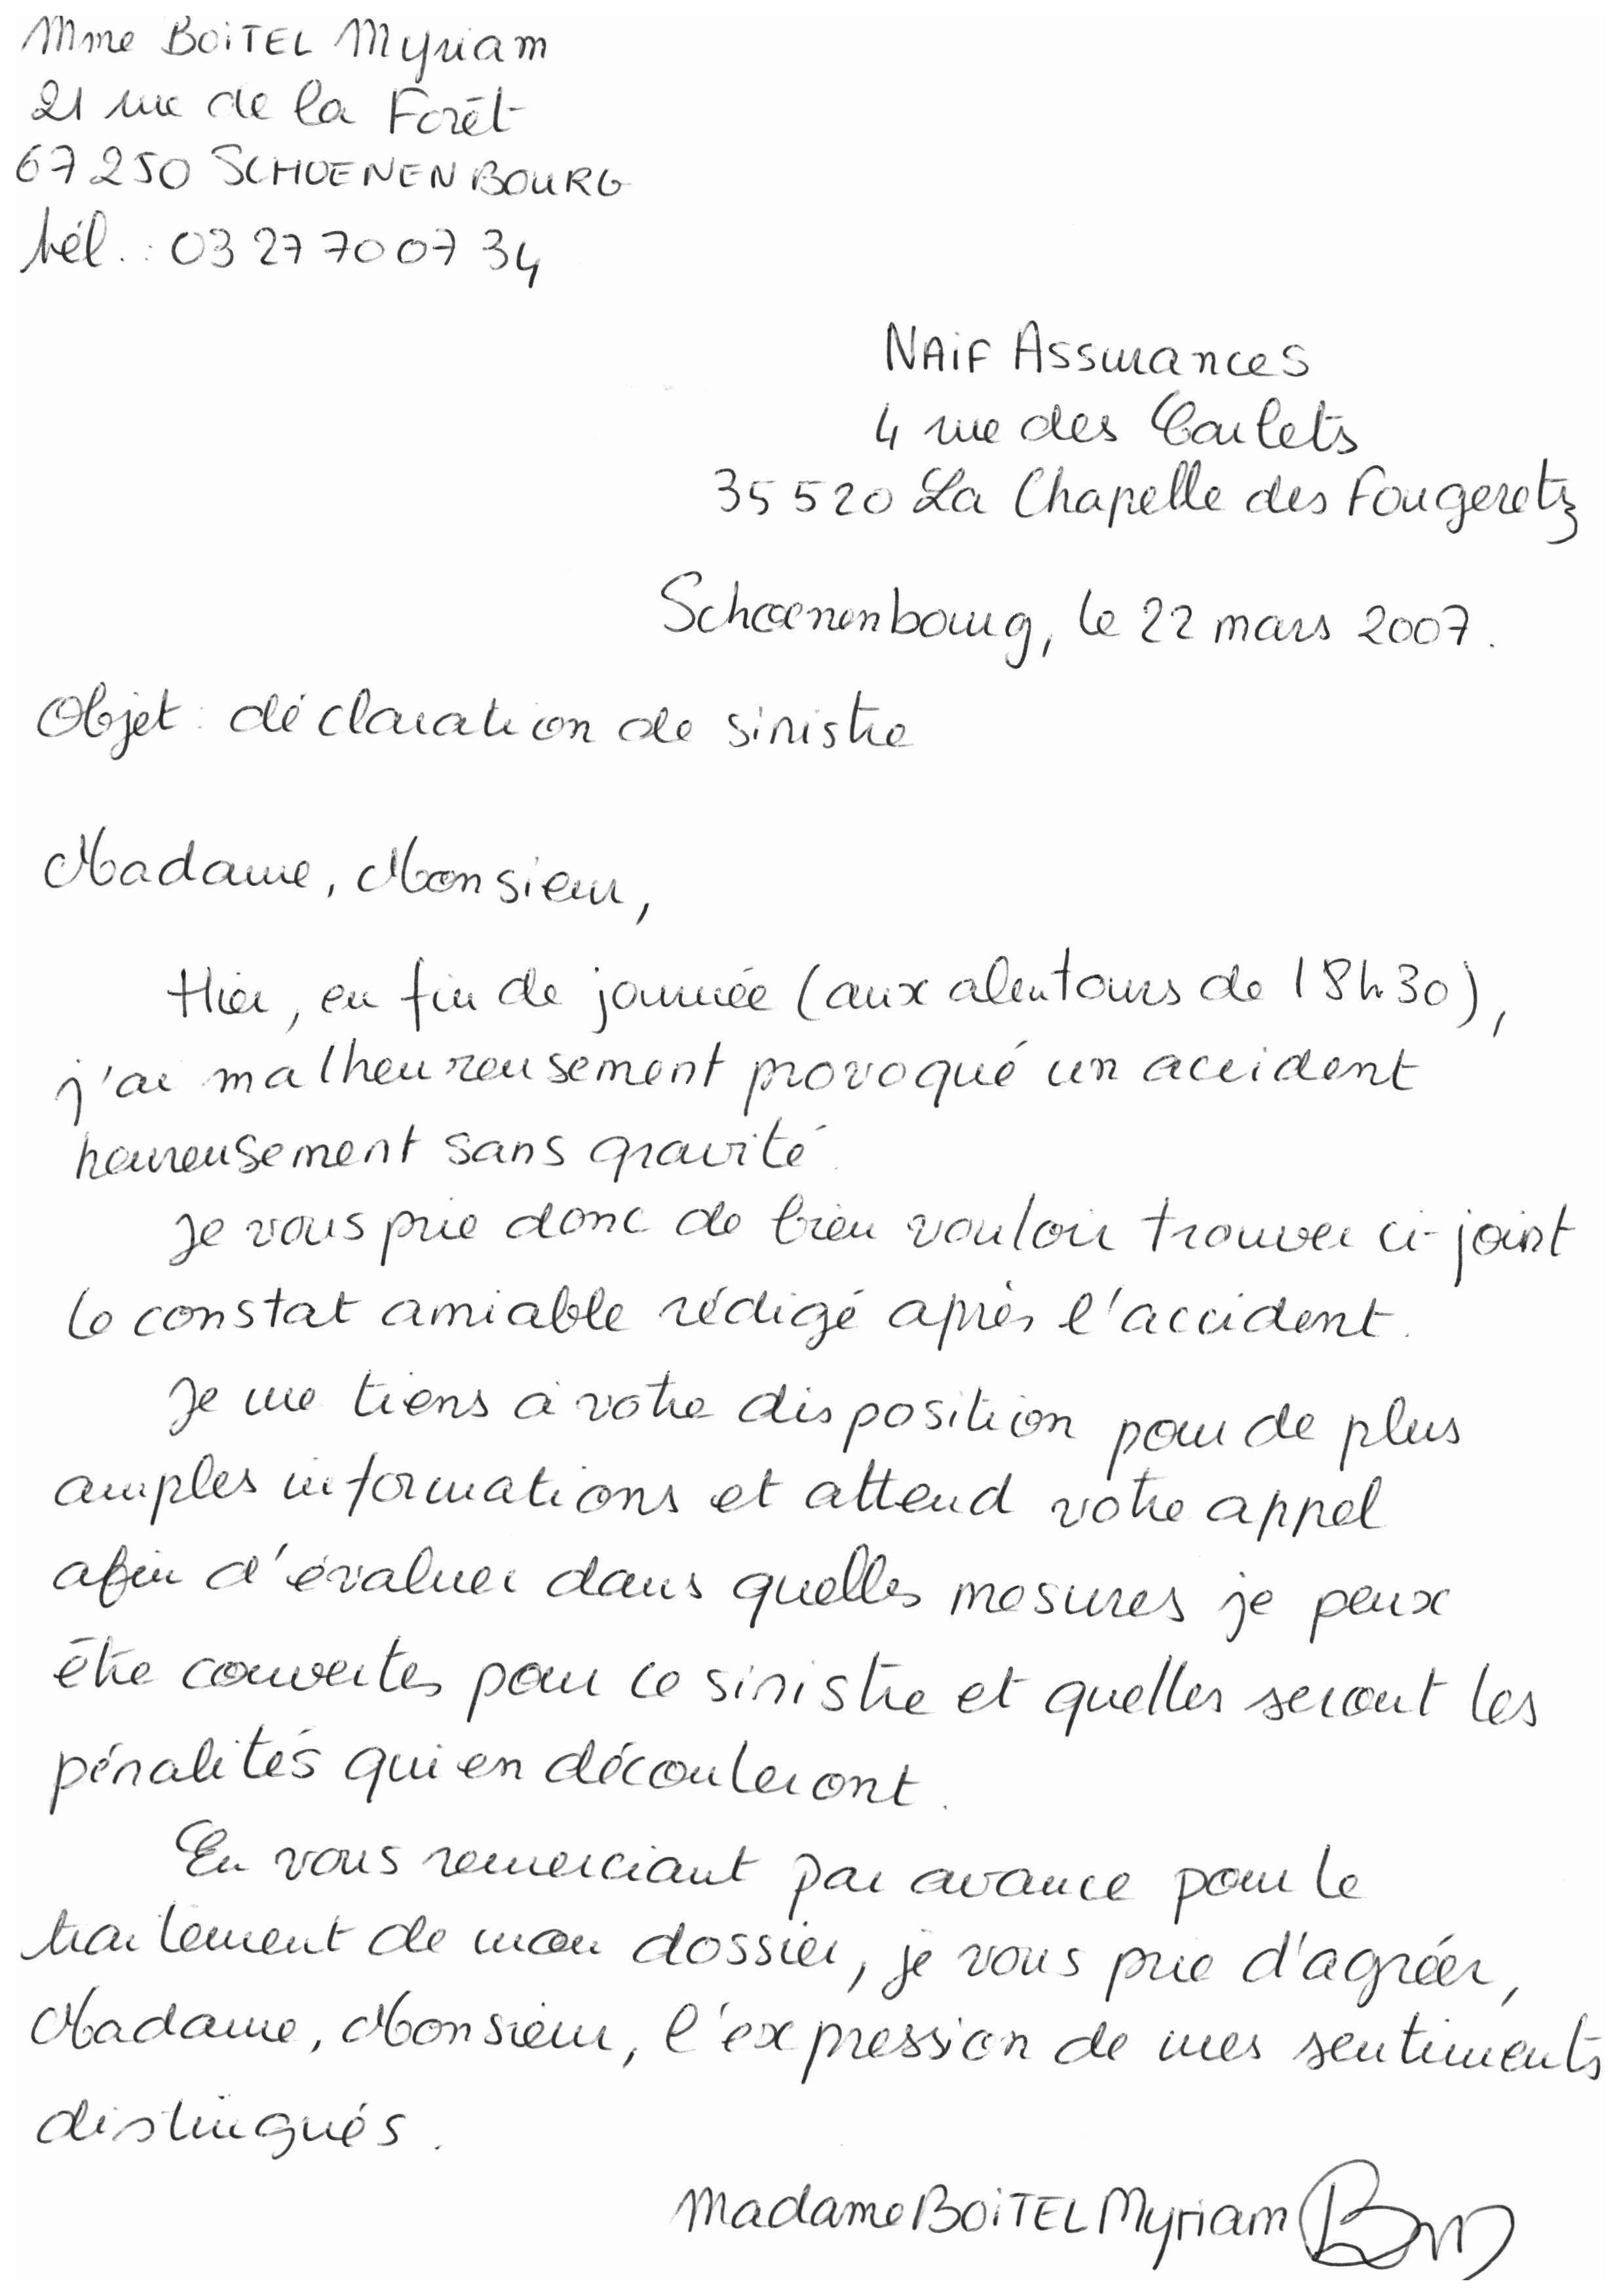 Mme BOITEL Myriam
21 rue de la Forêt
67250 SCHOENENBOURG
tél. : 03 27 70 07 34
NAIF Assurances
4 rue des Carlets
35520 La Chapelle des Fougeretz
Schoenenbourg, le 22 mars 2007.
Objet : déclaration de sinistre
Madame, Monsieur,
Hier, en fin de journée (aux alentours de 18h30),
j'ai malheureusement provoqué un accident
heureusement sans gravité.
Je vous prie donc de bien vouloir trouver ci-joint
le constat amiable rédigé après l'accident.
Je me tiens à votre disposition pour de plus
amples informations et attend votre appel
afin d'évaluer dans quelles mesures je peux
être couvertes pour ce sinistre et quelles seront les
pénalités qui en découleront.
En vous remerciant par avance pour le
traitement de mon dossier, je vous prie d'agréer,
Madame, Monsieur, l'expression de mes sentiments
distingués.
Madame BOITEL Myriam